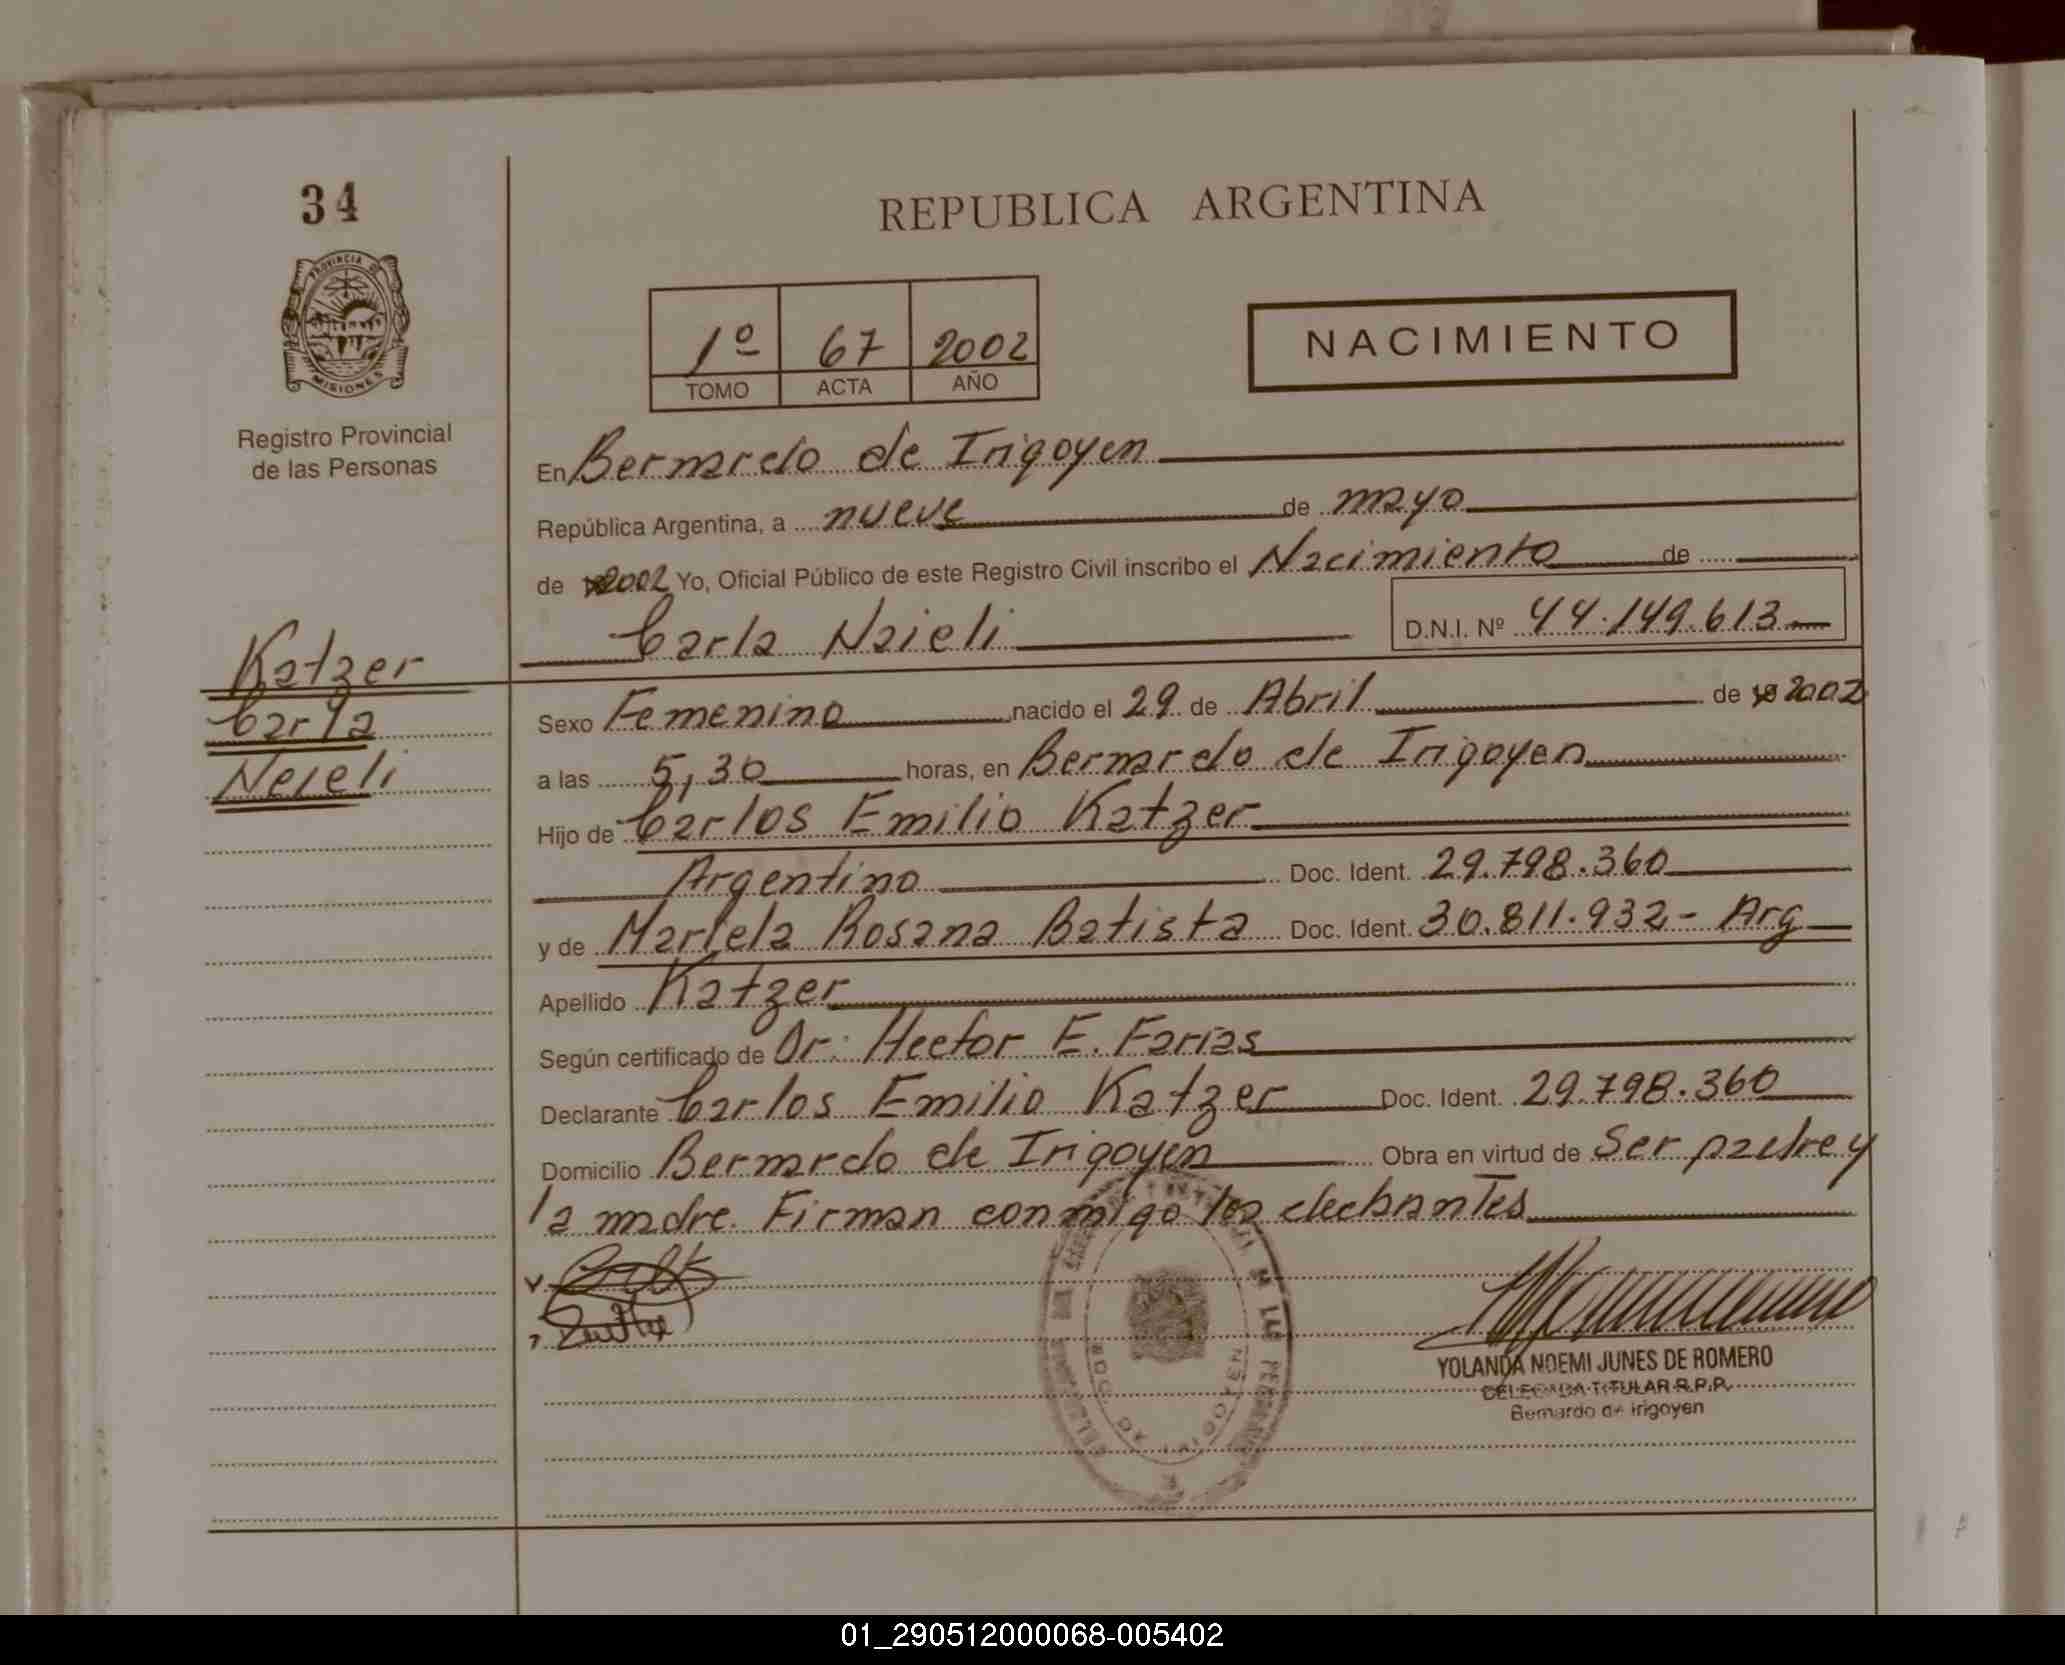 34
PROVINCIA DE
MISIONES
Registro Provincial
de las Personas
REPUBLICA ARGENTINA
1º 67 2002
TOMO ACTA AÑO
NACIMIENTO
En Bernardo de Irigoyen
República Argentina, a nueve de mayo
de 2002 Yo, Oficial Público de este Registro Civil inscribo el Nacimiento de
Carla Naieli D.N.I. Nº 44.149.613
Katzer
Carla
Neieli
Sexo Femenino nacido el 29 de Abril de 2002
a las 5,30 horas, en Bernardo de Irigoyen
Hijo de Carlos Emilio Katzer
Argentino Doc. Ident. 29.798.360
y de Mariela Rosana Batista Doc. Ident. 30.811.932- Arg
Apellido Katzer
Según certificado de Dr. Hector E. Farias
Declarante Carlos Emilio Katzer Doc. Ident. 29.798.360
Domicilio Bernardo de Irigoyen Obra en virtud de Ser padre y
la madre. Firman conmigo los declarantes
YOLANDA NOEMI JUNES DE ROMERO
DELEGADA TITULAR R.P.P.
Bernardo de Irigoyen
01_290512000068-005402